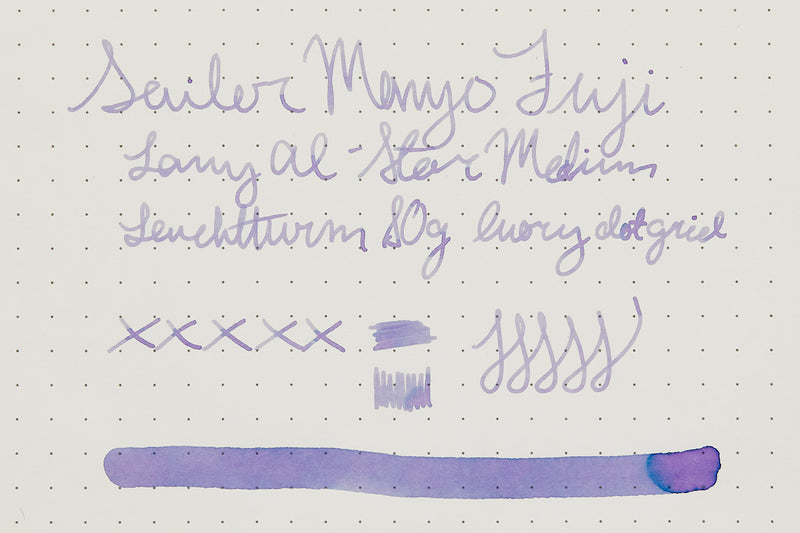 Sailor Manyo Fuji
Lamy Al-Star Medium
Leuchtturm 80g Ivory dotgrid
xxxxx